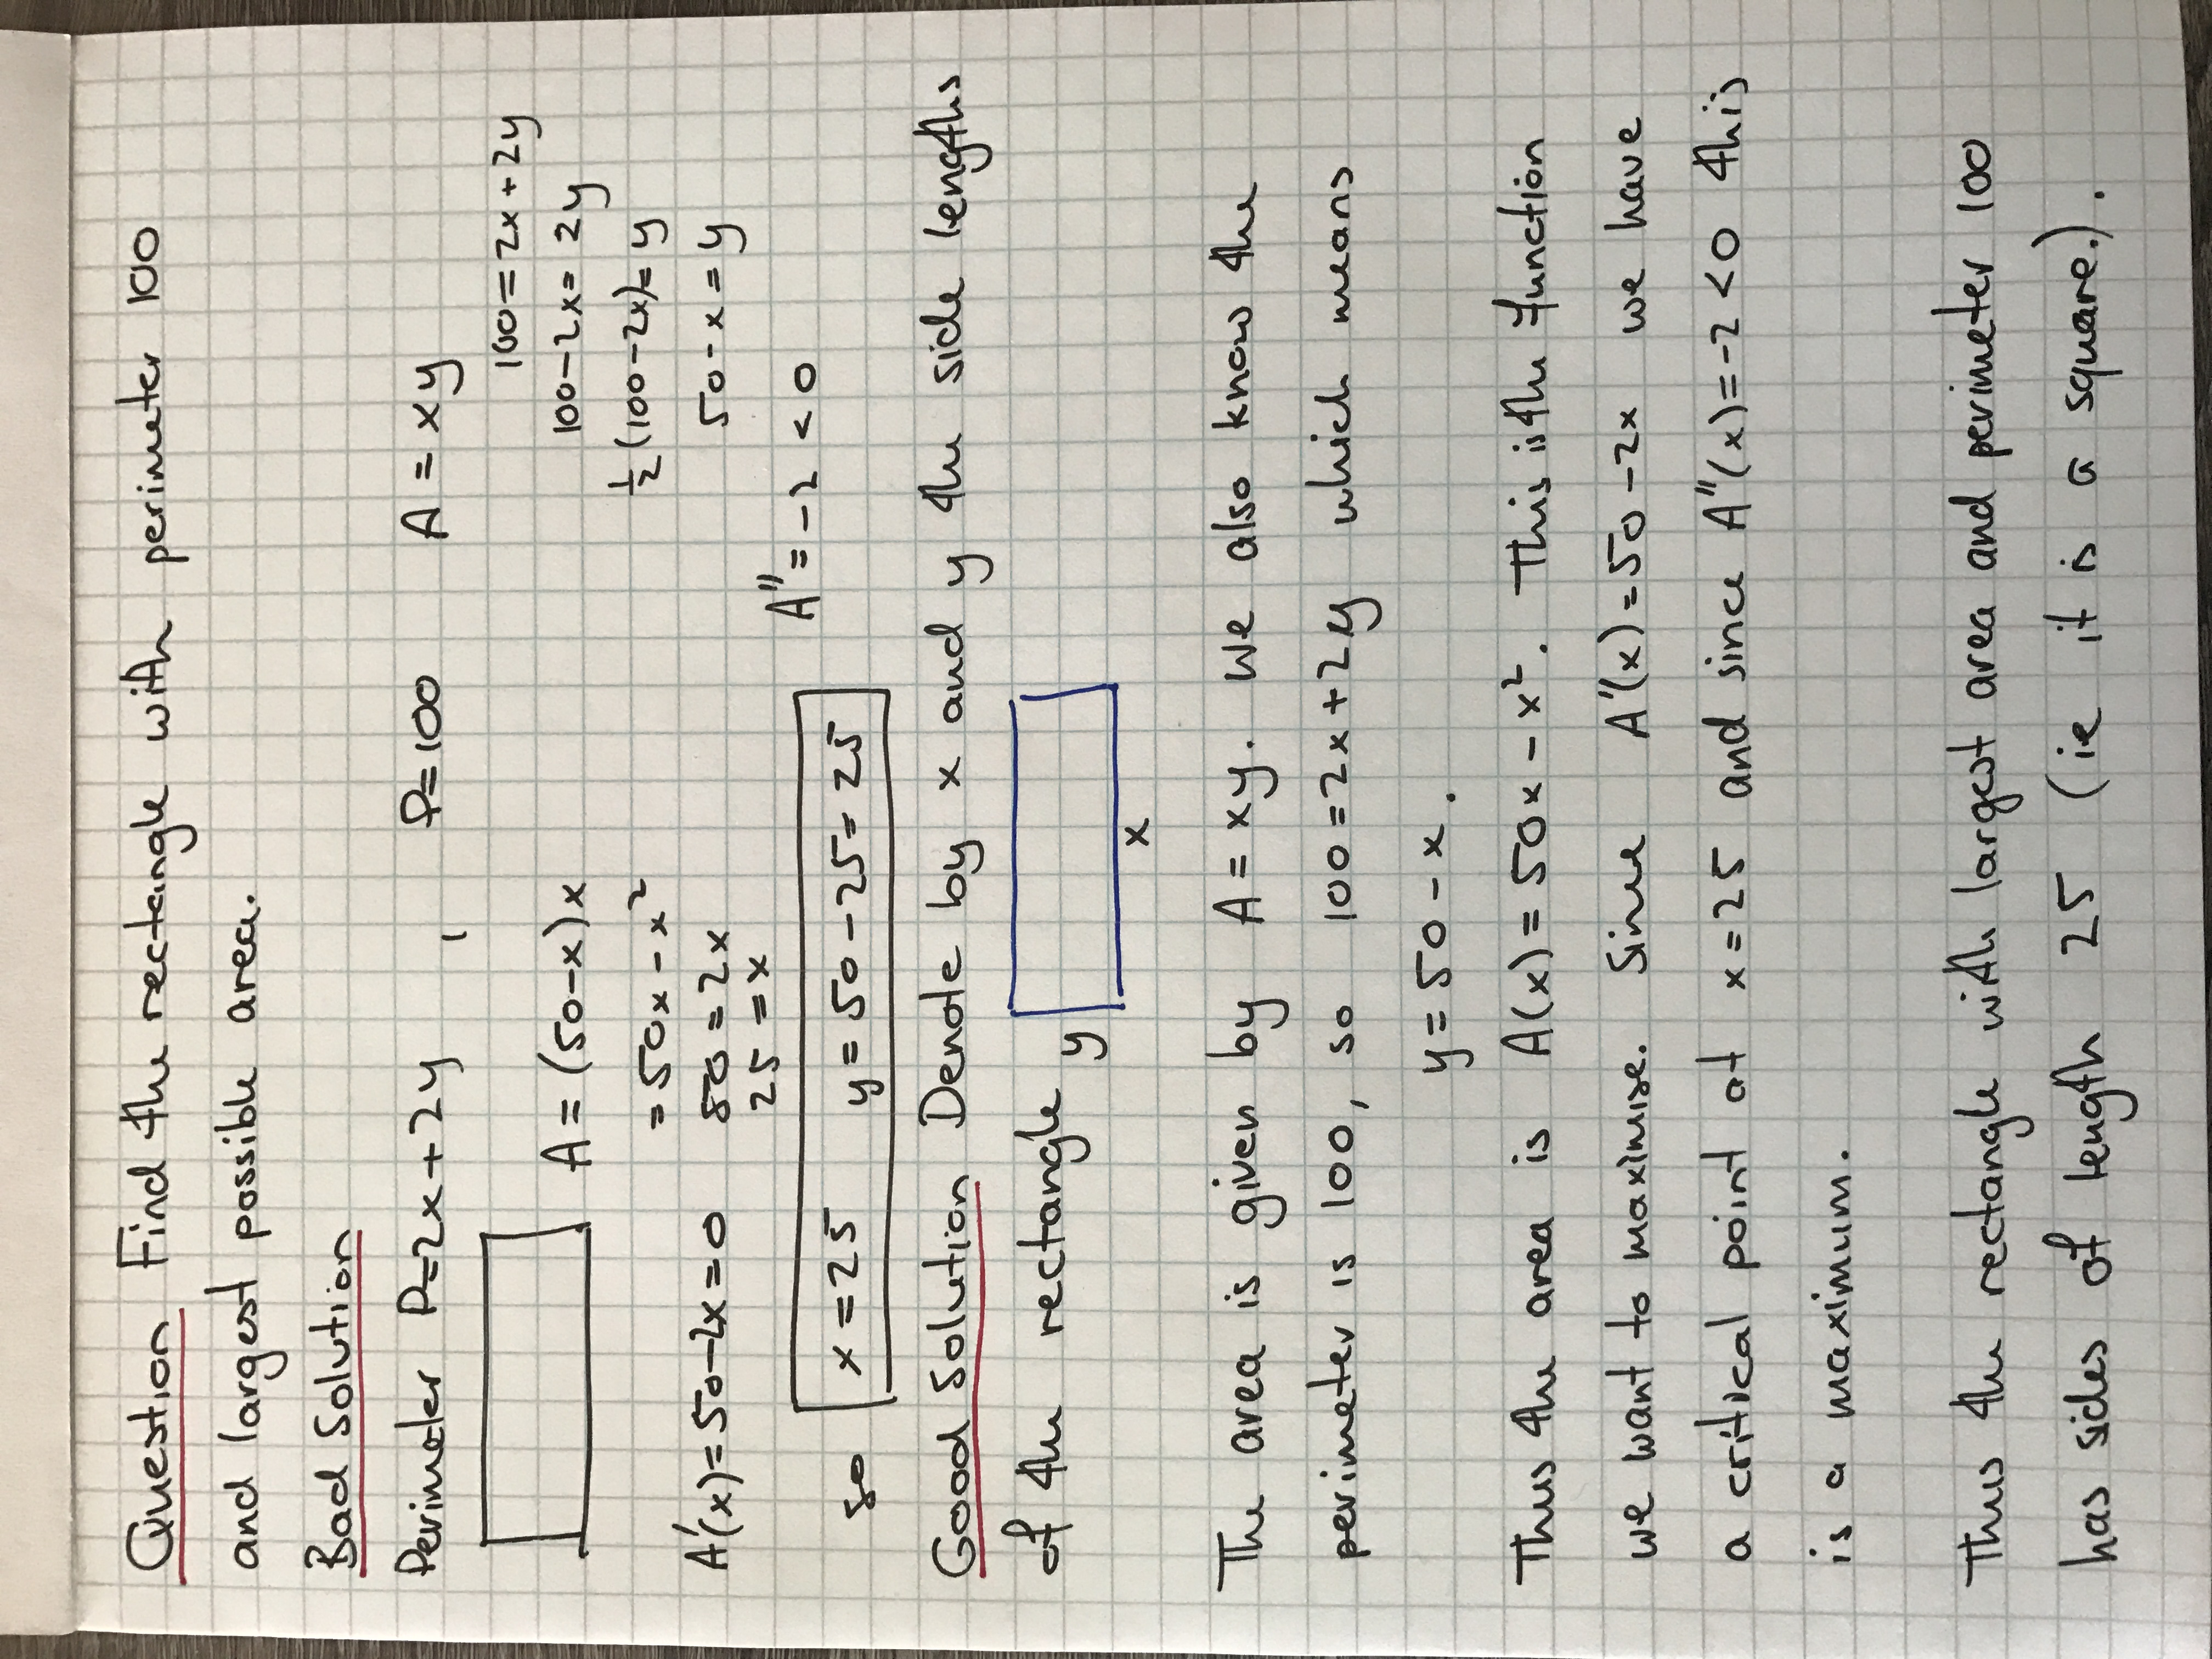 Question Find the rectangle with perimeter 100
and largest possible area.
Bad Solution
Perimeter P=2x+2y , P=100 A = xy
100=2x+2y
A = (50-x)x
100-2x= 2y
= 50x - x²
½(100-2x)= y
A'(x)=50-2x=0 50 = 2x
50-x=y
25 = x
A''= -2 < 0
so x=25 y=50-25=25
Good Solution Denote by x and y the side lengths
of the rectangle y
x
The area is given by A = xy. We also know the
perimeter is 100, so 100=2x+2y which means
y=50-x.
Thus the area is A(x)=50x-x². This is the function
we want to maximise. Since A'(x)=50-2x we have
a critical point at x=25 and since A''(x)=-2<0 this
is a maximum.
Thus the rectangle with largest area and perimeter 100
has sides of length 25 (ie it is a square.).